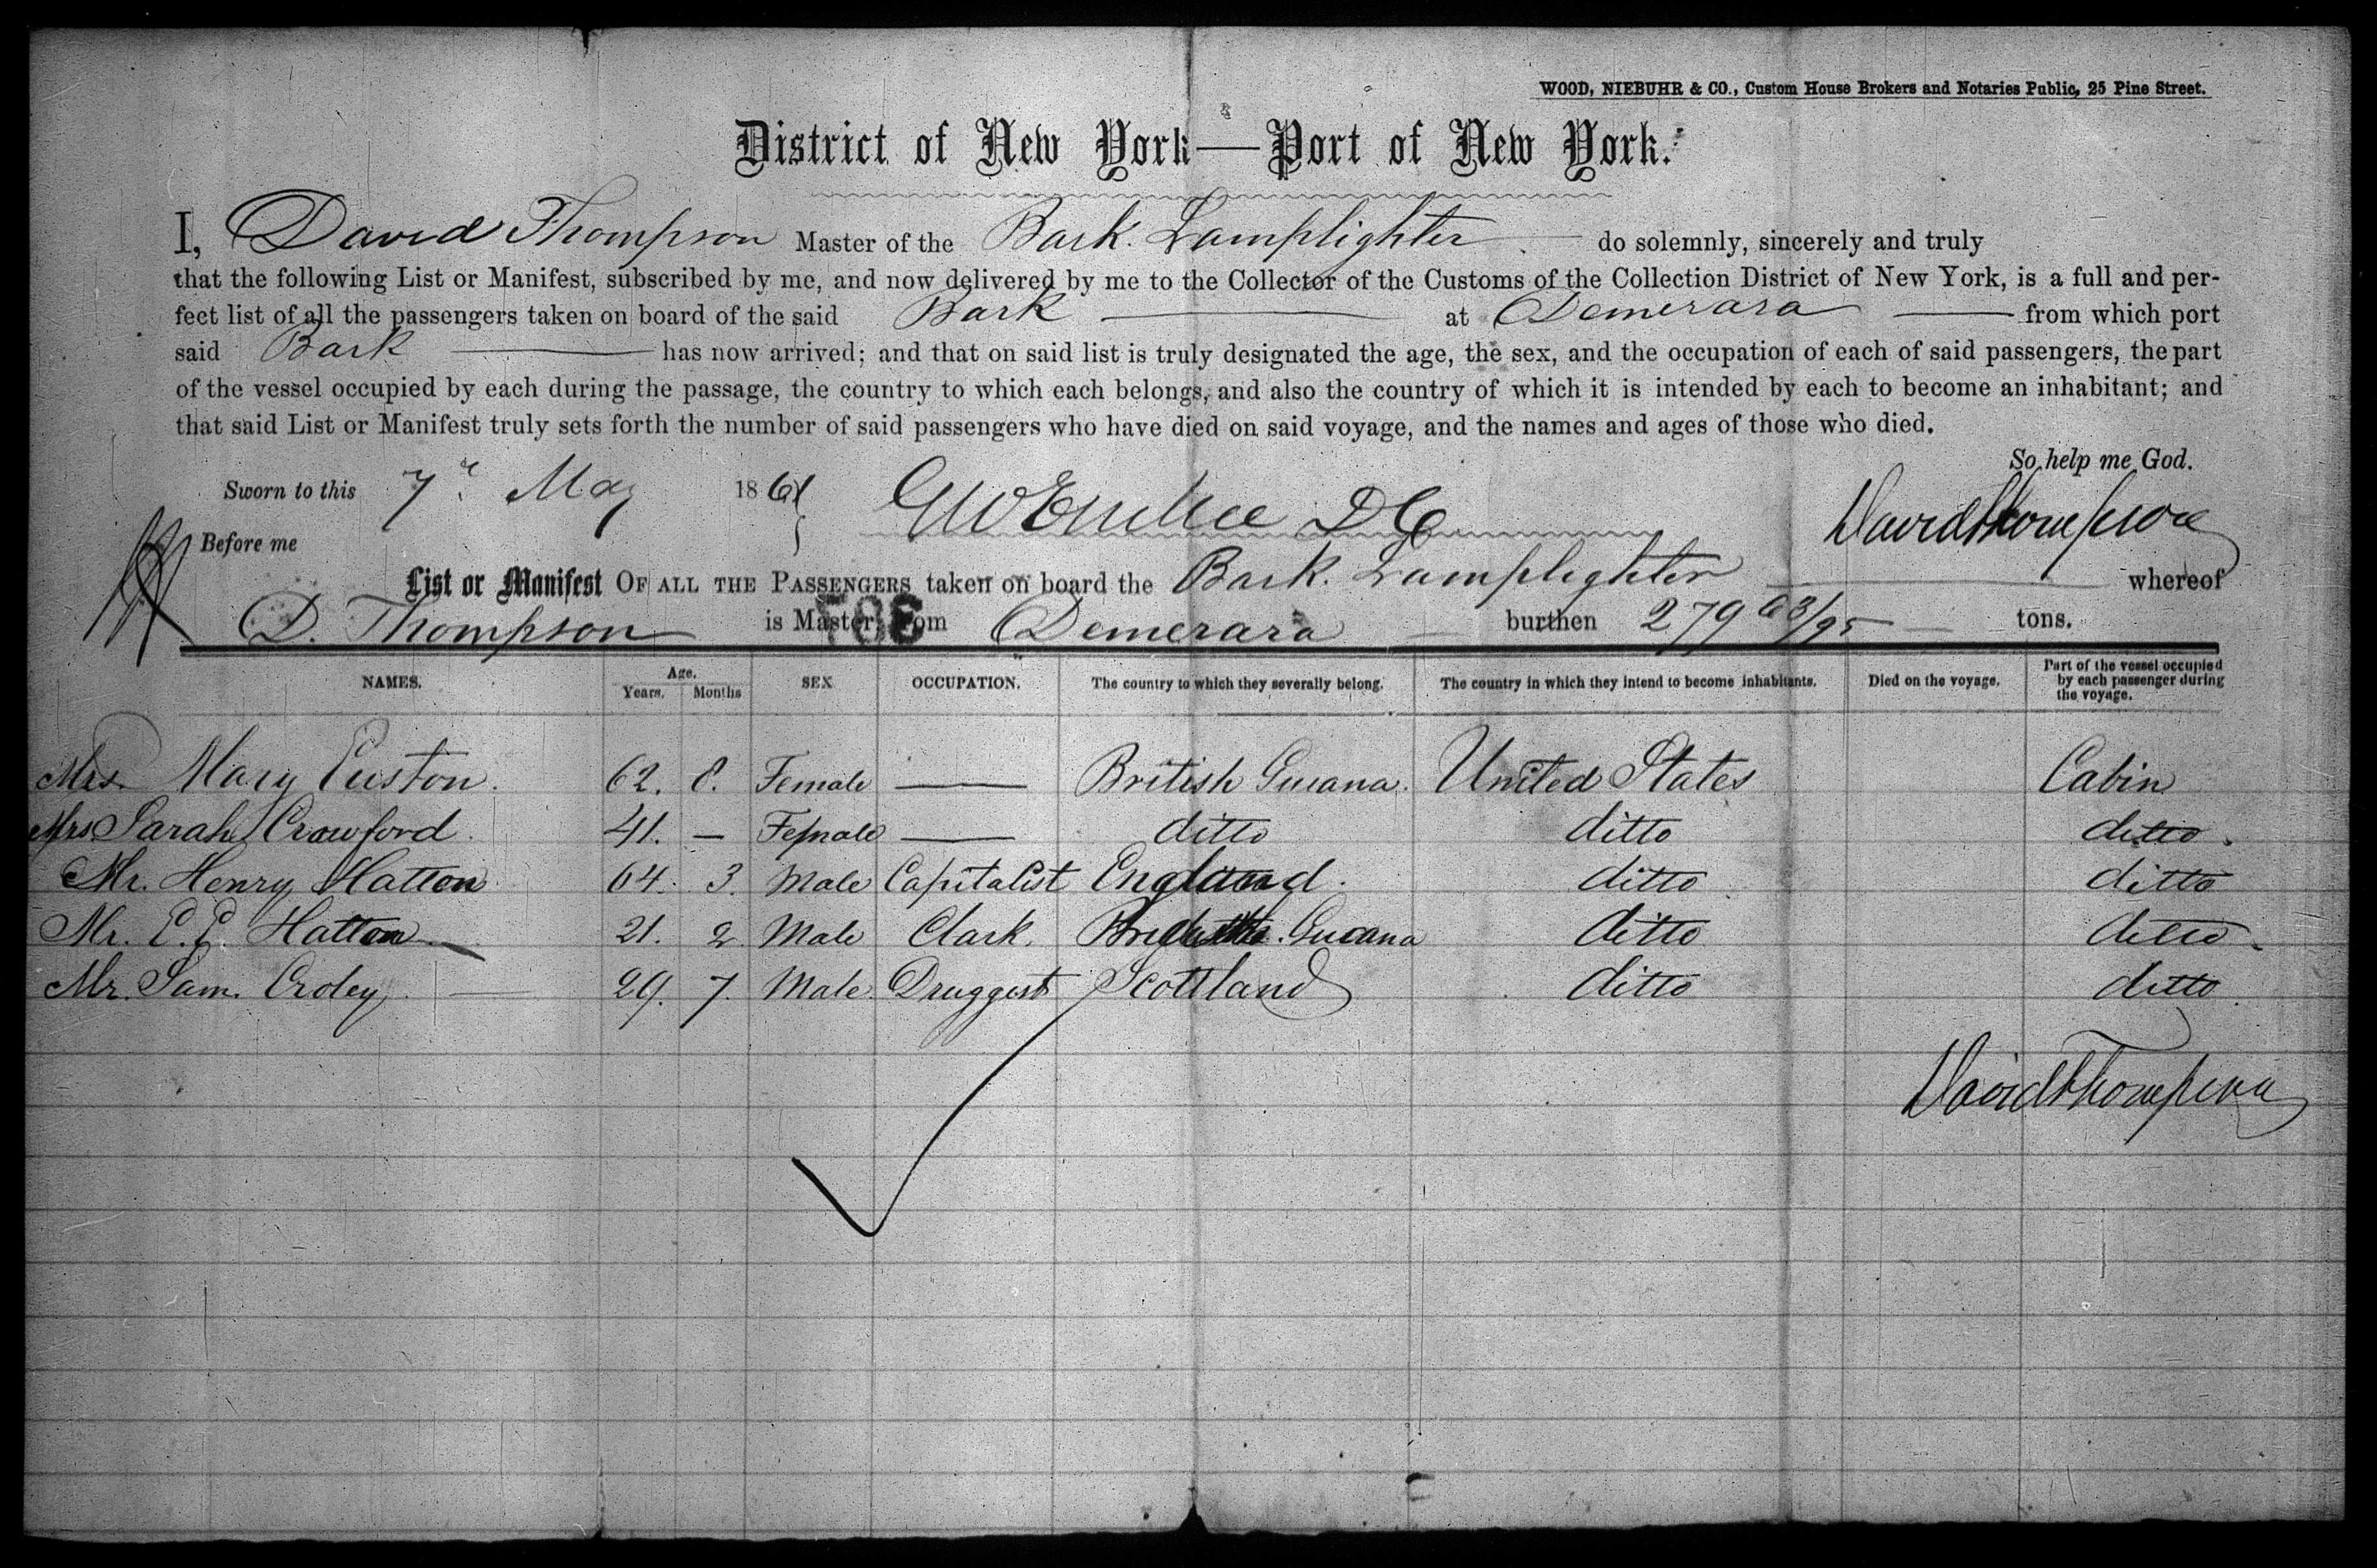 WOOD, NIEBUHR & CO., Custom House Brokers and Notaries Public, 25 Pine Street.
District of New York—Port of New York.
I, David Thompson Master of the Bark. Lamplighter do solemnly, sincerely and truly
that the following List or Manifest, subscribed by me, and now delivered by me to the Collector of the Customs of the Collection District of New York, is a full and per-
fect list of all the passengers taken on board of the said Bark at Demerara from which port
said Bark has now arrived; and that on said list is truly designated the age, the sex, and the occupation of each of said passengers, the part
of the vessel occupied by each during the passage, the country to which each belongs, and also the country of which it is intended by each to become an inhabitant; and
that said List or Manifest truly sets forth the number of said passengers who have died on said voyage, and the names and ages of those who died.
So help me God.
Sworn to this 7th May 1861
David Thompson
Before me
List or Manifest OF ALL THE PASSENGERS taken on board the Bark. Lamplighter whereof
D. Thompson is Master, from Demerara burthen 279 63/95 tons.
NAMES. Age. Years. Months SEX OCCUPATION. The country to which they severally belong. The country in which they intend to become inhabitants. Died on the voyage. Part of the vessel occupied by each passenger during the voyage.
Mrs. Mary Euston. 62. 8. Female — British Guiana. United States Cabin
Mrs Sarah Crawford. 41. — Female — ditto ditto ditto.
Mr. Henry Hatton 64. 3. Male Capitalist England. ditto ditto
Mr. E. E. Hatton 21. 2 Male Clark. Guiana ditto ditto.
Mr. Sam. Croley. 29. 7. Male. Druggest Scottland ditto ditto.
David Thompson